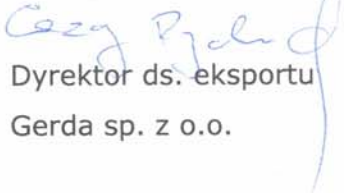 Dyrektor ds. eksportu
Gerda sp. z o.o.